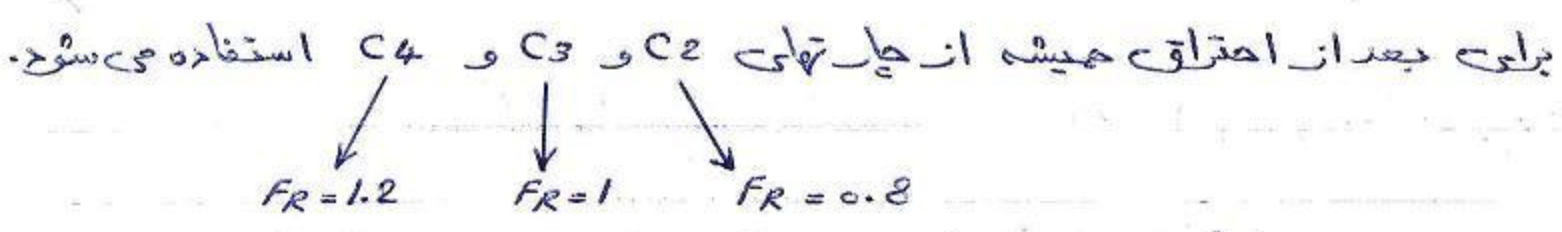 برای بعد از احتراق همیشه از چارتهای C2 و C3 و C4 استفاده می شود.
FR = 0.8 FR = 1 FR = 1.2